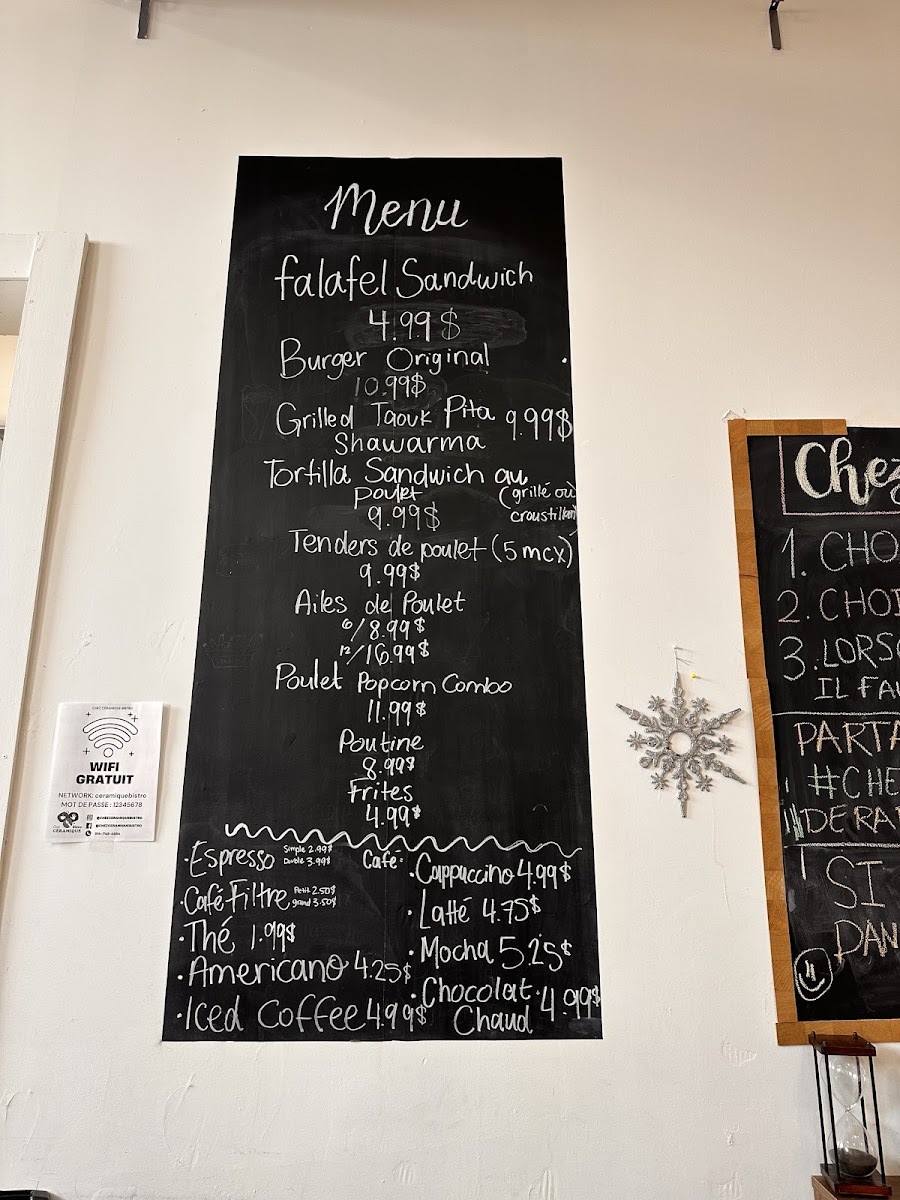 Menu
falafel Sandwich
4.99$
Burger Original
10.99$
Grilled Taouk Pita 9.99$
Shawarma
Tortilla Sandwich au
poulet (grillé où
9.99$ croustillant)
Tenders de poulet (5 mcx)
9.99$
Ailes de Poulet
6/8.99$
12/16.99$
Poulet Popcorn Combo
11.99$
Poutine
8.99$
Frites
4.99$
Café:
·Espresso Simple 2.99$
Double 3.99$
·Café Filtre Petit 2.50$
grand 3.50$
·Thé 1.99$
·Americano 4.25$
·Iced Coffee 4.99$
·Cappuccino 4.99$
·Latté 4.75$
·Mocha 5.25$
·Chocolat 4.99$
Chaud
CHEZ CÉRAMIQUE BISTRO
WIFI
GRATUIT
NETWORK: ceramiquebistro
MOT DE PASSE: 12345678
CÉRAMIQUE
@CHEZCERAMIQUEBISTRO
@CHEZCERAMIQUEBISTRO
Chez
1. CHO
2. CHOI
3. LORSQ
IL FAU
PARTA
#CHE
DERA
SI
DAN